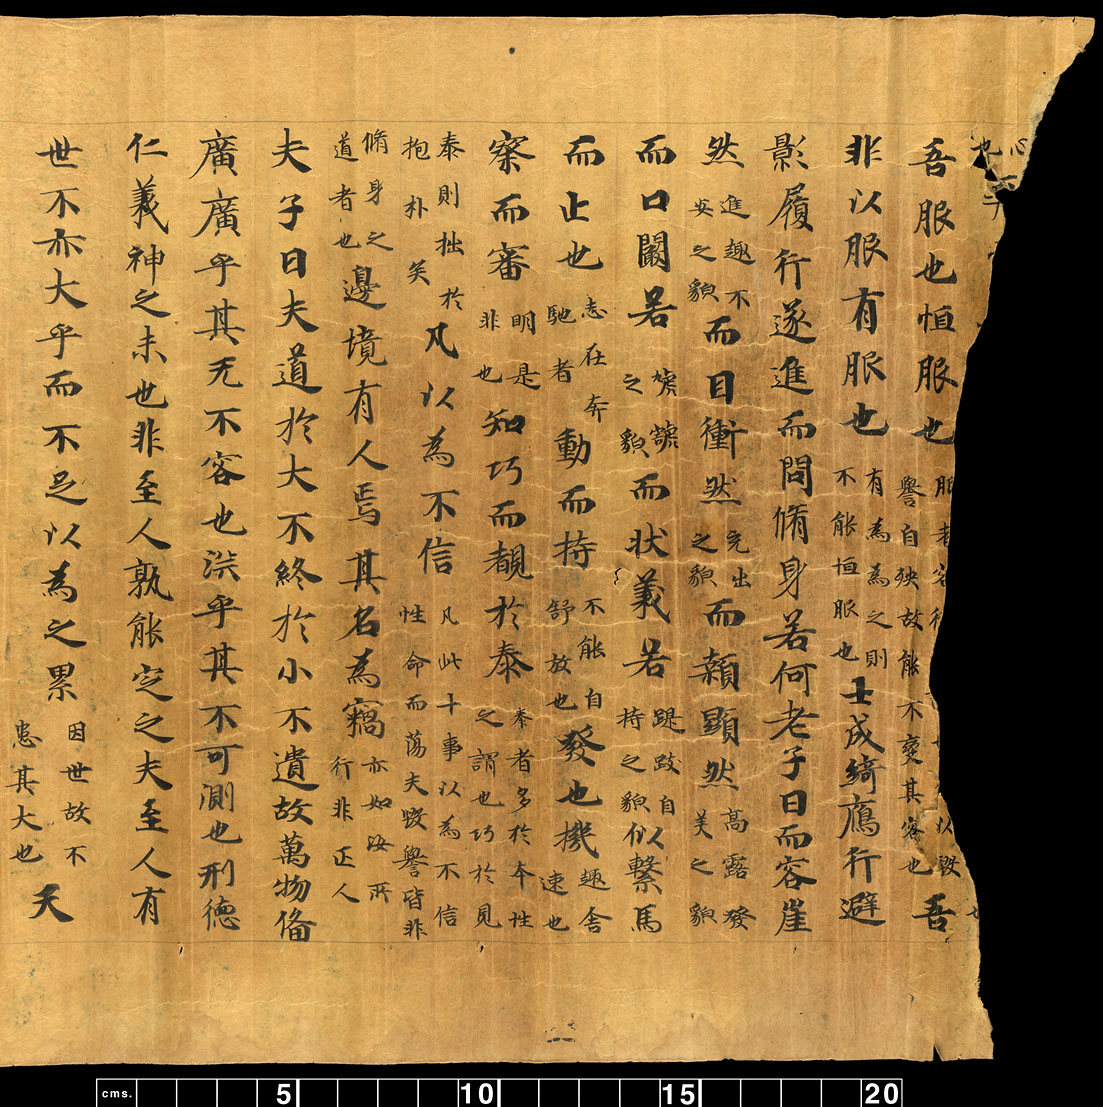 心也
吾服也恒服也服者容行以毀譽自殃故能不變其容也吾
非以服有服也有為為之則不能恒服也士成綺鴈行避
影履行遂進而問脩身若何老子曰而容崖
然進趣不安之貌而目衝然充出之貌而顙顯然高露發美之貌
而口闞若虓豁之貌而狀義若踶跂自持之貌似繫馬
而止也志在奔馳者動而持不能自舒放也發也機趨舍速也
察而審明是非也知巧而覩於泰泰者多於本性之謂也巧於見
泰則拙於抱朴矣凡以為不信凡此十事以為不信性命而蕩夫毀譽皆非
脩身之道者也邊境有人焉其名為竊亦如汝所行非正人
夫子曰夫道於大不終於小不遺故萬物俻
廣廣乎其无不容也渁乎其不可測也刑德
仁義神之末也非至人孰能定之夫至人有
世不亦大乎而不足以為之累因世故不患其大也天